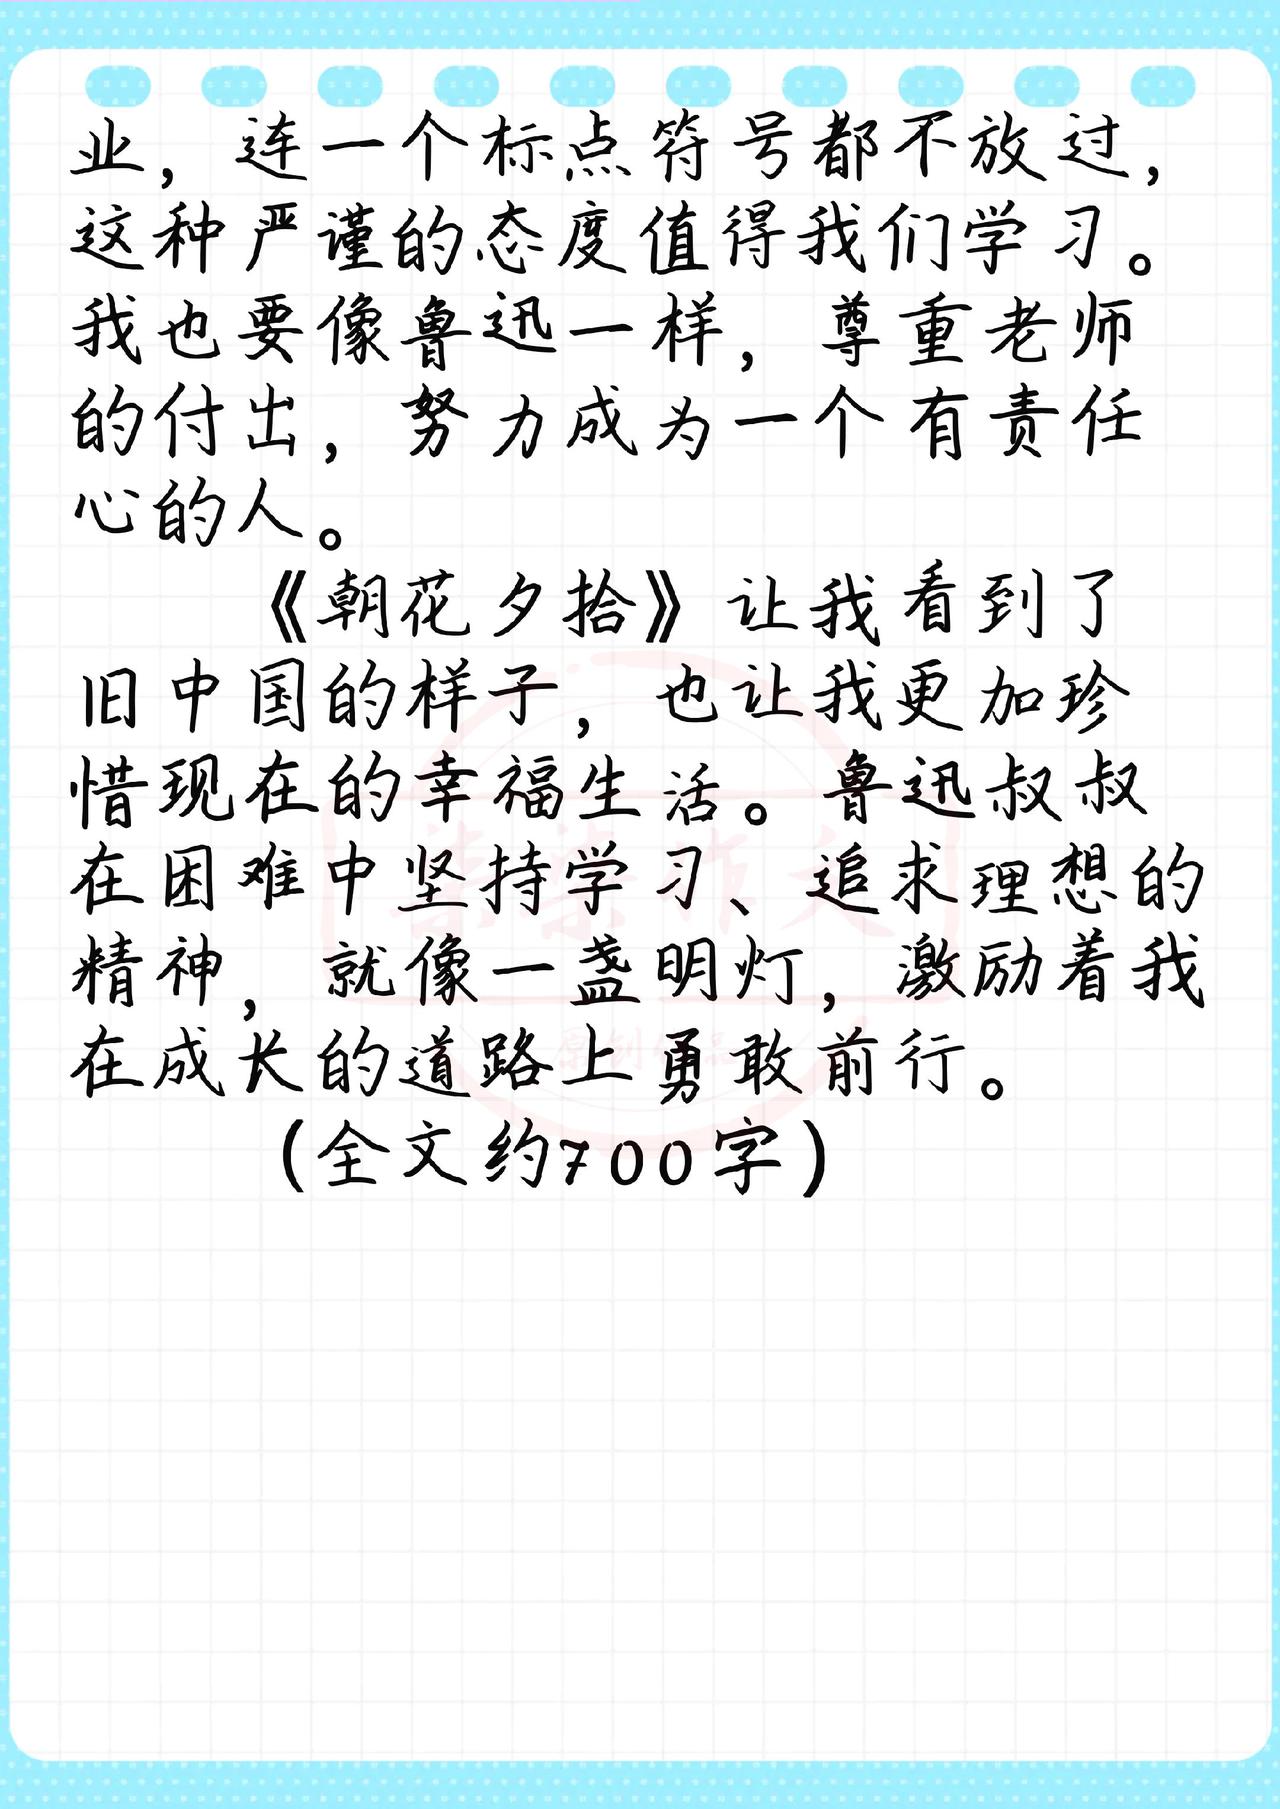 业，连一个标点符号都不放过，
这种严谨的态度值得我们学习。
我也要像鲁迅一样，尊重老师
的付出，努力成为一个有责任
心的人。
《朝花夕拾》让我看到了
旧中国的样子，也让我更加珍
惜现在的幸福生活。鲁迅叔叔
在困难中坚持学习、追求理想的
精神，就像一盏明灯，激励着我
在成长的道路上勇敢前行。
（全文约700字）